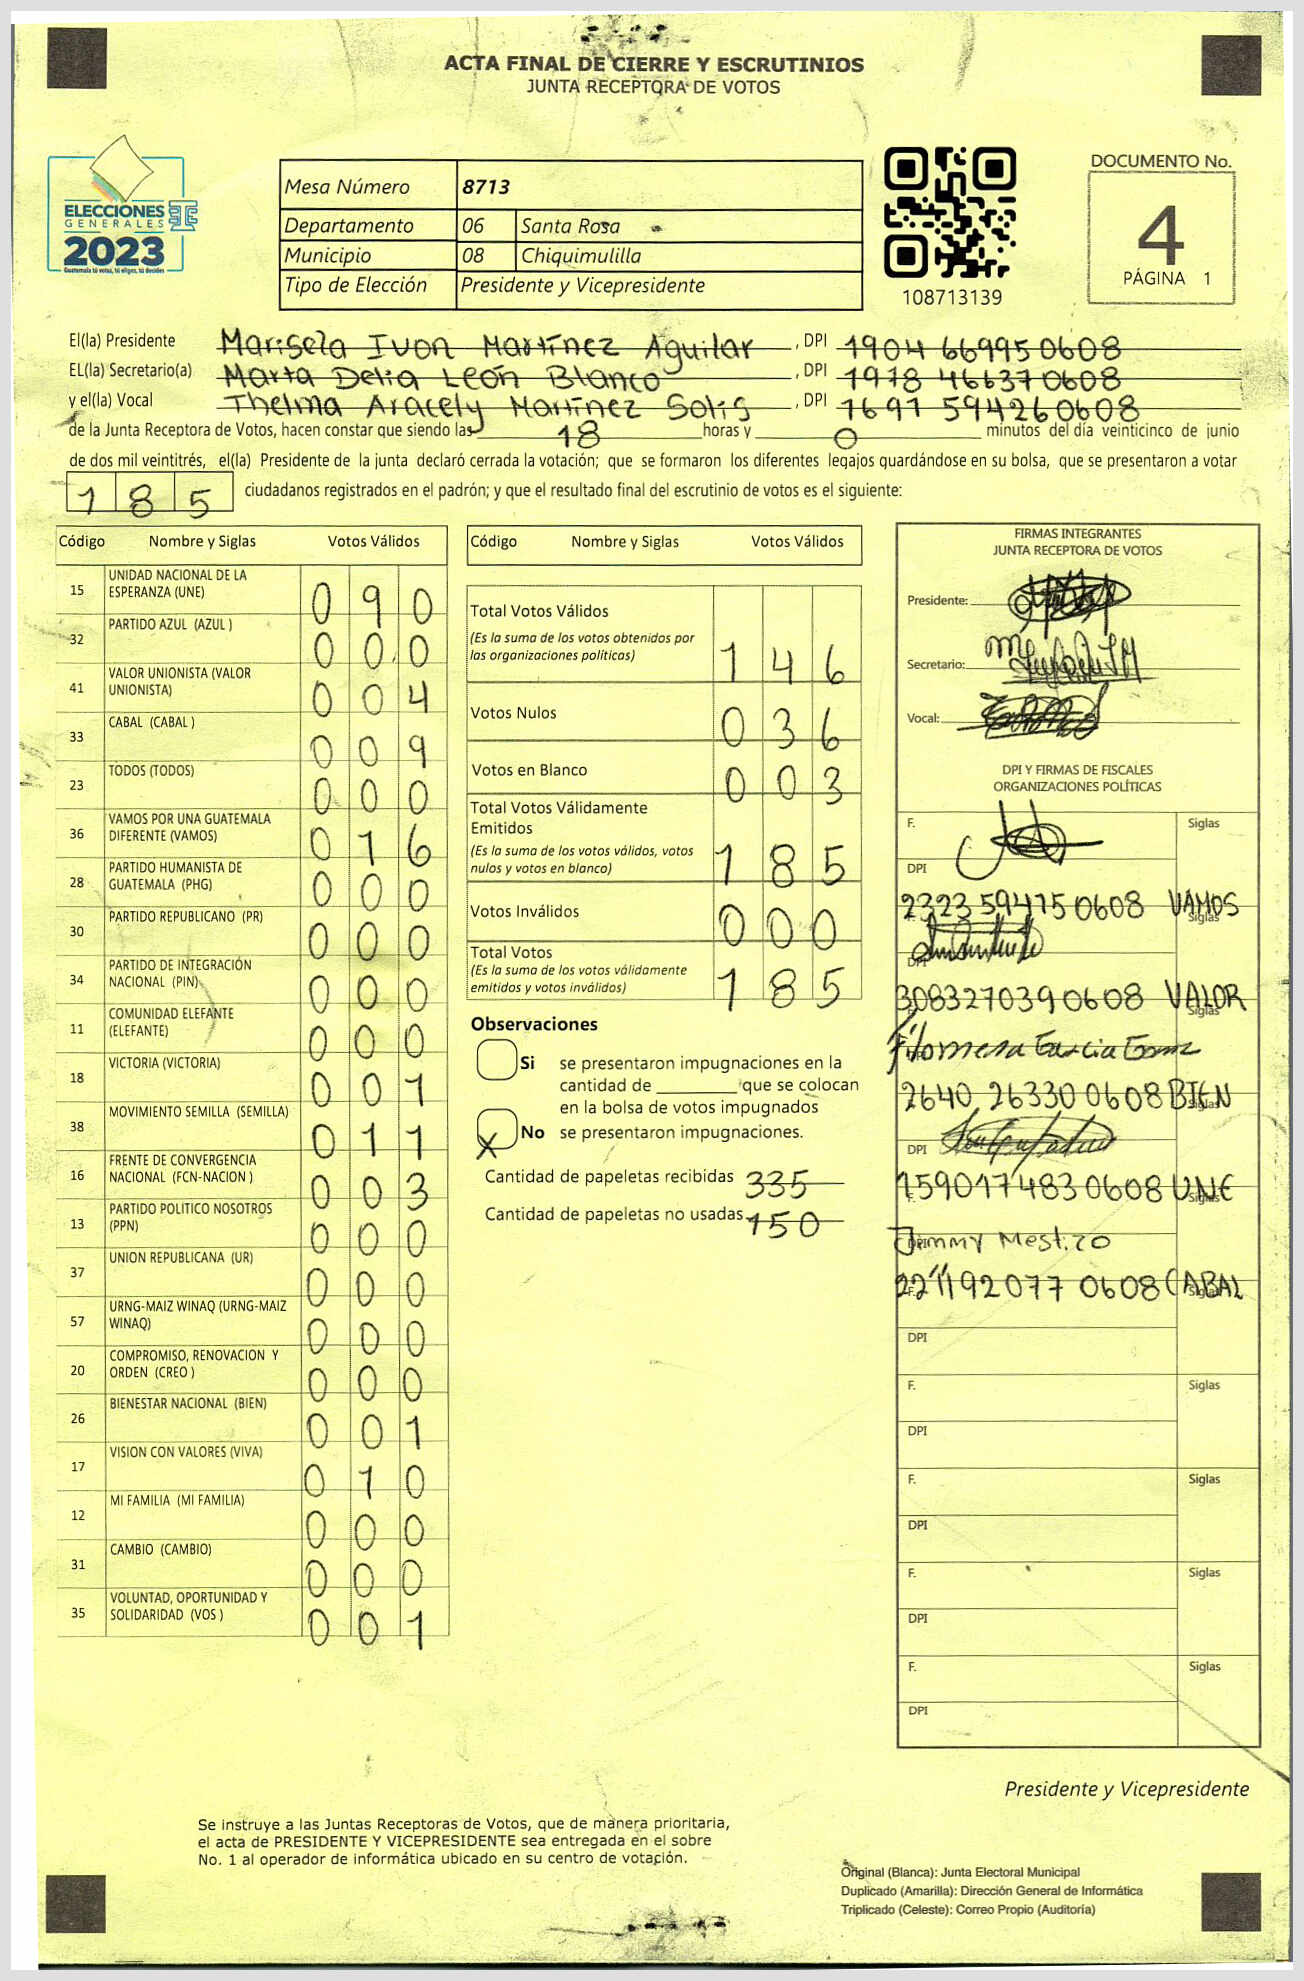 ACTA FINAL DE CIERRE Y ESCRUTINIOS
JUNTA RECEPTORA DE VOTOS
ELECCIONES
GENERALES
2023
Guatemala tú votas, tú eliges, tú decides
Mesa Número 8713
Departamento 06 Santa Rosa
Municipio 08 Chiquimulilla
Tipo de Elección Presidente y Vicepresidente
108713139
DOCUMENTO No.
4
PÁGINA 1
El(la) Presidente Marisela Ivon Martínez Aguilar, DPI 1904 66995 0608
EL(la) Secretario(a) Marta Delia León Blanco, DPI 1978 46637 0608
y el(la) Vocal Thelma Aracely Martínez Solis, DPI 1697 59426 0608
de la Junta Receptora de Votos, hacen constar que siendo las 18 horas y 0 minutos del día veinticinco de junio
de dos mil veintitrés, el(la) Presidente de la junta declaró cerrada la votación; que se formaron los diferentes legajos guardándose en su bolsa, que se presentaron a votar
185 ciudadanos registrados en el padrón; y que el resultado final del escrutinio de votos es el siguiente:
Código Nombre y Siglas Votos Válidos
15 UNIDAD NACIONAL DE LA
ESPERANZA (UNE) 090
32 PARTIDO AZUL (AZUL ) 000
41 VALOR UNIONISTA (VALOR
UNIONISTA) 004
33 CABAL (CABAL ) 009
23 TODOS (TODOS) 000
36 VAMOS POR UNA GUATEMALA
DIFERENTE (VAMOS) 016
28 PARTIDO HUMANISTA DE
GUATEMALA (PHG) 000
30 PARTIDO REPUBLICANO (PR) 000
34 PARTIDO DE INTEGRACIÓN
NACIONAL (PIN) 000
11 COMUNIDAD ELEFANTE
(ELEFANTE) 000
18 VICTORIA (VICTORIA) 001
38 MOVIMIENTO SEMILLA (SEMILLA) 011
16 FRENTE DE CONVERGENCIA
NACIONAL (FCN-NACION ) 003
13 PARTIDO POLÍTICO NOSOTROS
(PPN) 000
37 UNION REPUBLICANA (UR) 000
57 URNG-MAIZ WINAQ (URNG-MAIZ
WINAQ) 000
20 COMPROMISO, RENOVACION Y
ORDEN (CREO ) 000
26 BIENESTAR NACIONAL (BIEN) 001
17 VISION CON VALORES (VIVA) 010
12 MI FAMILIA (MI FAMILIA) 000
31 CAMBIO (CAMBIO) 000
35 VOLUNTAD, OPORTUNIDAD Y
SOLIDARIDAD (VOS ) 001
Código Nombre y Siglas Votos Válidos
Total Votos Válidos
(Es la suma de los votos obtenidos por
las organizaciones políticas) 146
Votos Nulos 036
Votos en Blanco 003
Total Votos Válidamente
Emitidos
(Es la suma de los votos válidos, votos
nulos y votos en blanco) 185
Votos Inválidos 000
Total Votos
(Es la suma de los votos válidamente
emitidos y votos inválidos) 185
Observaciones
Si se presentaron impugnaciones en la
cantidad de que se colocan
en la bolsa de votos impugnados
X No se presentaron impugnaciones.
Cantidad de papeletas recibidas 335
Cantidad de papeletas no usadas 150
FIRMAS INTEGRANTES
JUNTA RECEPTORA DE VOTOS
Presidente:
Secretario:
Vocal:
DPI Y FIRMAS DE FISCALES
ORGANIZACIONES POLÍTICAS
F. Siglas
DPI
2323 59475 0608 VAMOS
Siglas
DPI
3083270390608 VALOR
Siglas
Filomena Garcia
2640 26330 0608 BIEN
Siglas
DPI
1590174830608 UNE
Siglas
DPI
Jimmy Mestizo
221192077 0608 CABAL
F. Siglas
DPI
F. Siglas
DPI
F. Siglas
DPI
F. Siglas
DPI
F. Siglas
DPI
Presidente y Vicepresidente
Se instruye a las Juntas Receptoras de Votos, que de manera prioritaria,
el acta de PRESIDENTE Y VICEPRESIDENTE sea entregada en el sobre
No. 1 al operador de informática ubicado en su centro de votación.
Original (Blanca): Junta Electoral Municipal
Duplicado (Amarilla): Dirección General de Informática
Triplicado (Celeste): Correo Propio (Auditoría)